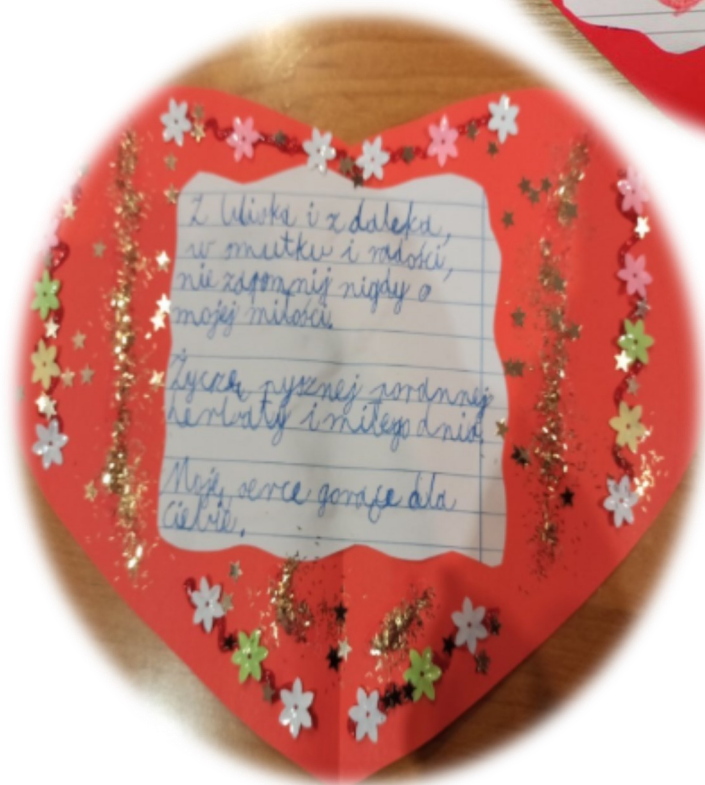 Z bliska i z daleka,
w smutku i radości,
nie zapomnij nigdy o
mojej miłości.
Życzę pysznej porannej
herbaty i miłego dnia
Moje serce gorące dla
ciebie.